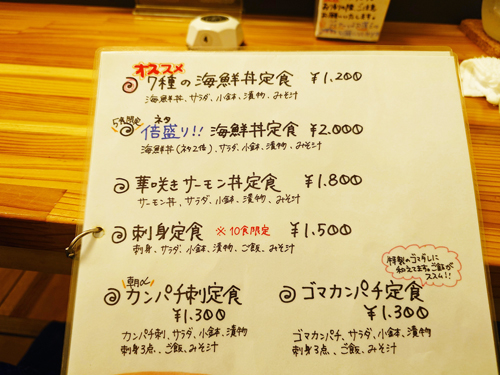 オススメ
7種の海鮮丼定食 ¥1,200
海鮮丼、サラダ、小鉢、漬物、みそ汁
5食限定 ネタ
倍盛り!! 海鮮丼定食 ¥2.000
海鮮丼(ネタ2倍)、サラダ、小鉢、漬物、みそ汁
華咲きサーモン丼定食 ¥1.800
サーモン丼、サラダ、小鉢、漬物、みそ汁
刺身定食 ※10食限定 ¥1,500
刺身、サラダ、小鉢、漬物、ご飯、みそ汁
特製のゴマダレに
和えてます。ご飯が
ススム!!
朝〆
カンパチ刺定食
¥1.300
カンパチ刺、サラダ、小鉢、漬物
刺身3点、ご飯、みそ汁
ゴマカンパチ定食
¥1.300
ゴマカンパチ、サラダ、小鉢、漬物
刺身3点、ご飯、みそ汁